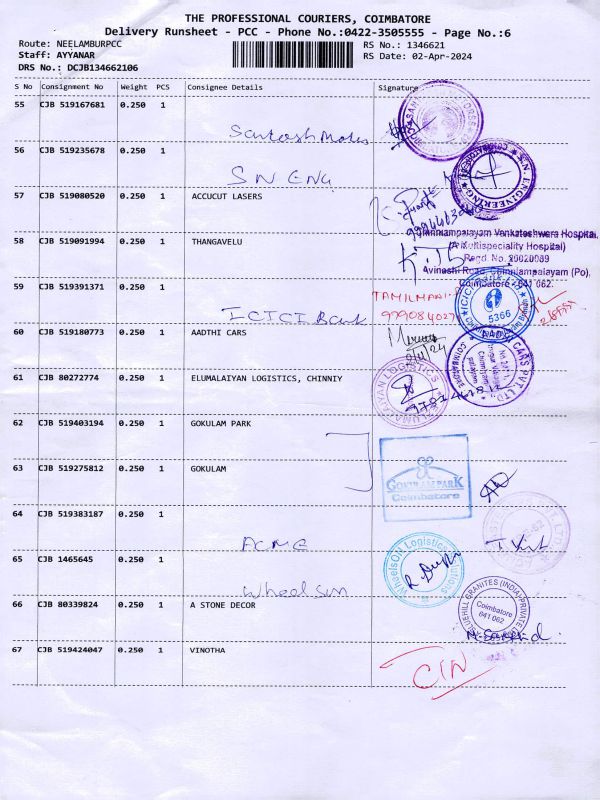 THE PROFESSIONAL COURIERS, COIMBATORE
Delivery Runsheet - PCC - Phone No.:0422-3505555 - Page No.:6
Route: NEELAMBURPCC
RS No.: 1346621
Staff: AYYANAR
RS Date: 02-Apr-2024
DRS No.: DCJB134662106
S No Consignment No Weight PCS Consignee Details Signature
55 CJB 519167681 0.250 1
Santosh
56 CJB 519235678 0.250 1
S N ENG
S.N. ENGINEERING
57 CJB 519080520 0.250 1 ACCUCUT LASERS
58 CJB 519091994 0.250 1 THANGAVELU
Chinniampalayam Venkateshwara Hospital,
(A Multispeciality Hospital)
Regd. No. 20020089
Avinashi Road, Chinniampalayam (Po),
Coimbatore - 641 062.
59 CJB 519391371 0.250 1
ICICI Bank
5366
60 CJB 519180773 0.250 1 AADTHI CARS
CARS PVT. LTD.,
61 CJB 80272774 0.250 1 ELUMALAIYAN LOGISTICS, CHINNIY
ELUMALAYAN LOGISTICS
62 CJB 519403194 0.250 1 GOKULAM PARK
63 CJB 519275812 0.250 1 GOKULAM
GOKULAM PARK
Coimbatore
64 CJB 519383187 0.250 1
ACME
65 CJB 1465645 0.250 1
Wheelson
WheelsON Logistics Solutions
66 CJB 80339824 0.250 1 A STONE DECOR
BLUEHILL GRANITES (INDIA) PRIVATE
Coimbatore
641 062
67 CJB 519424047 0.250 1 VINOTHA
CIN